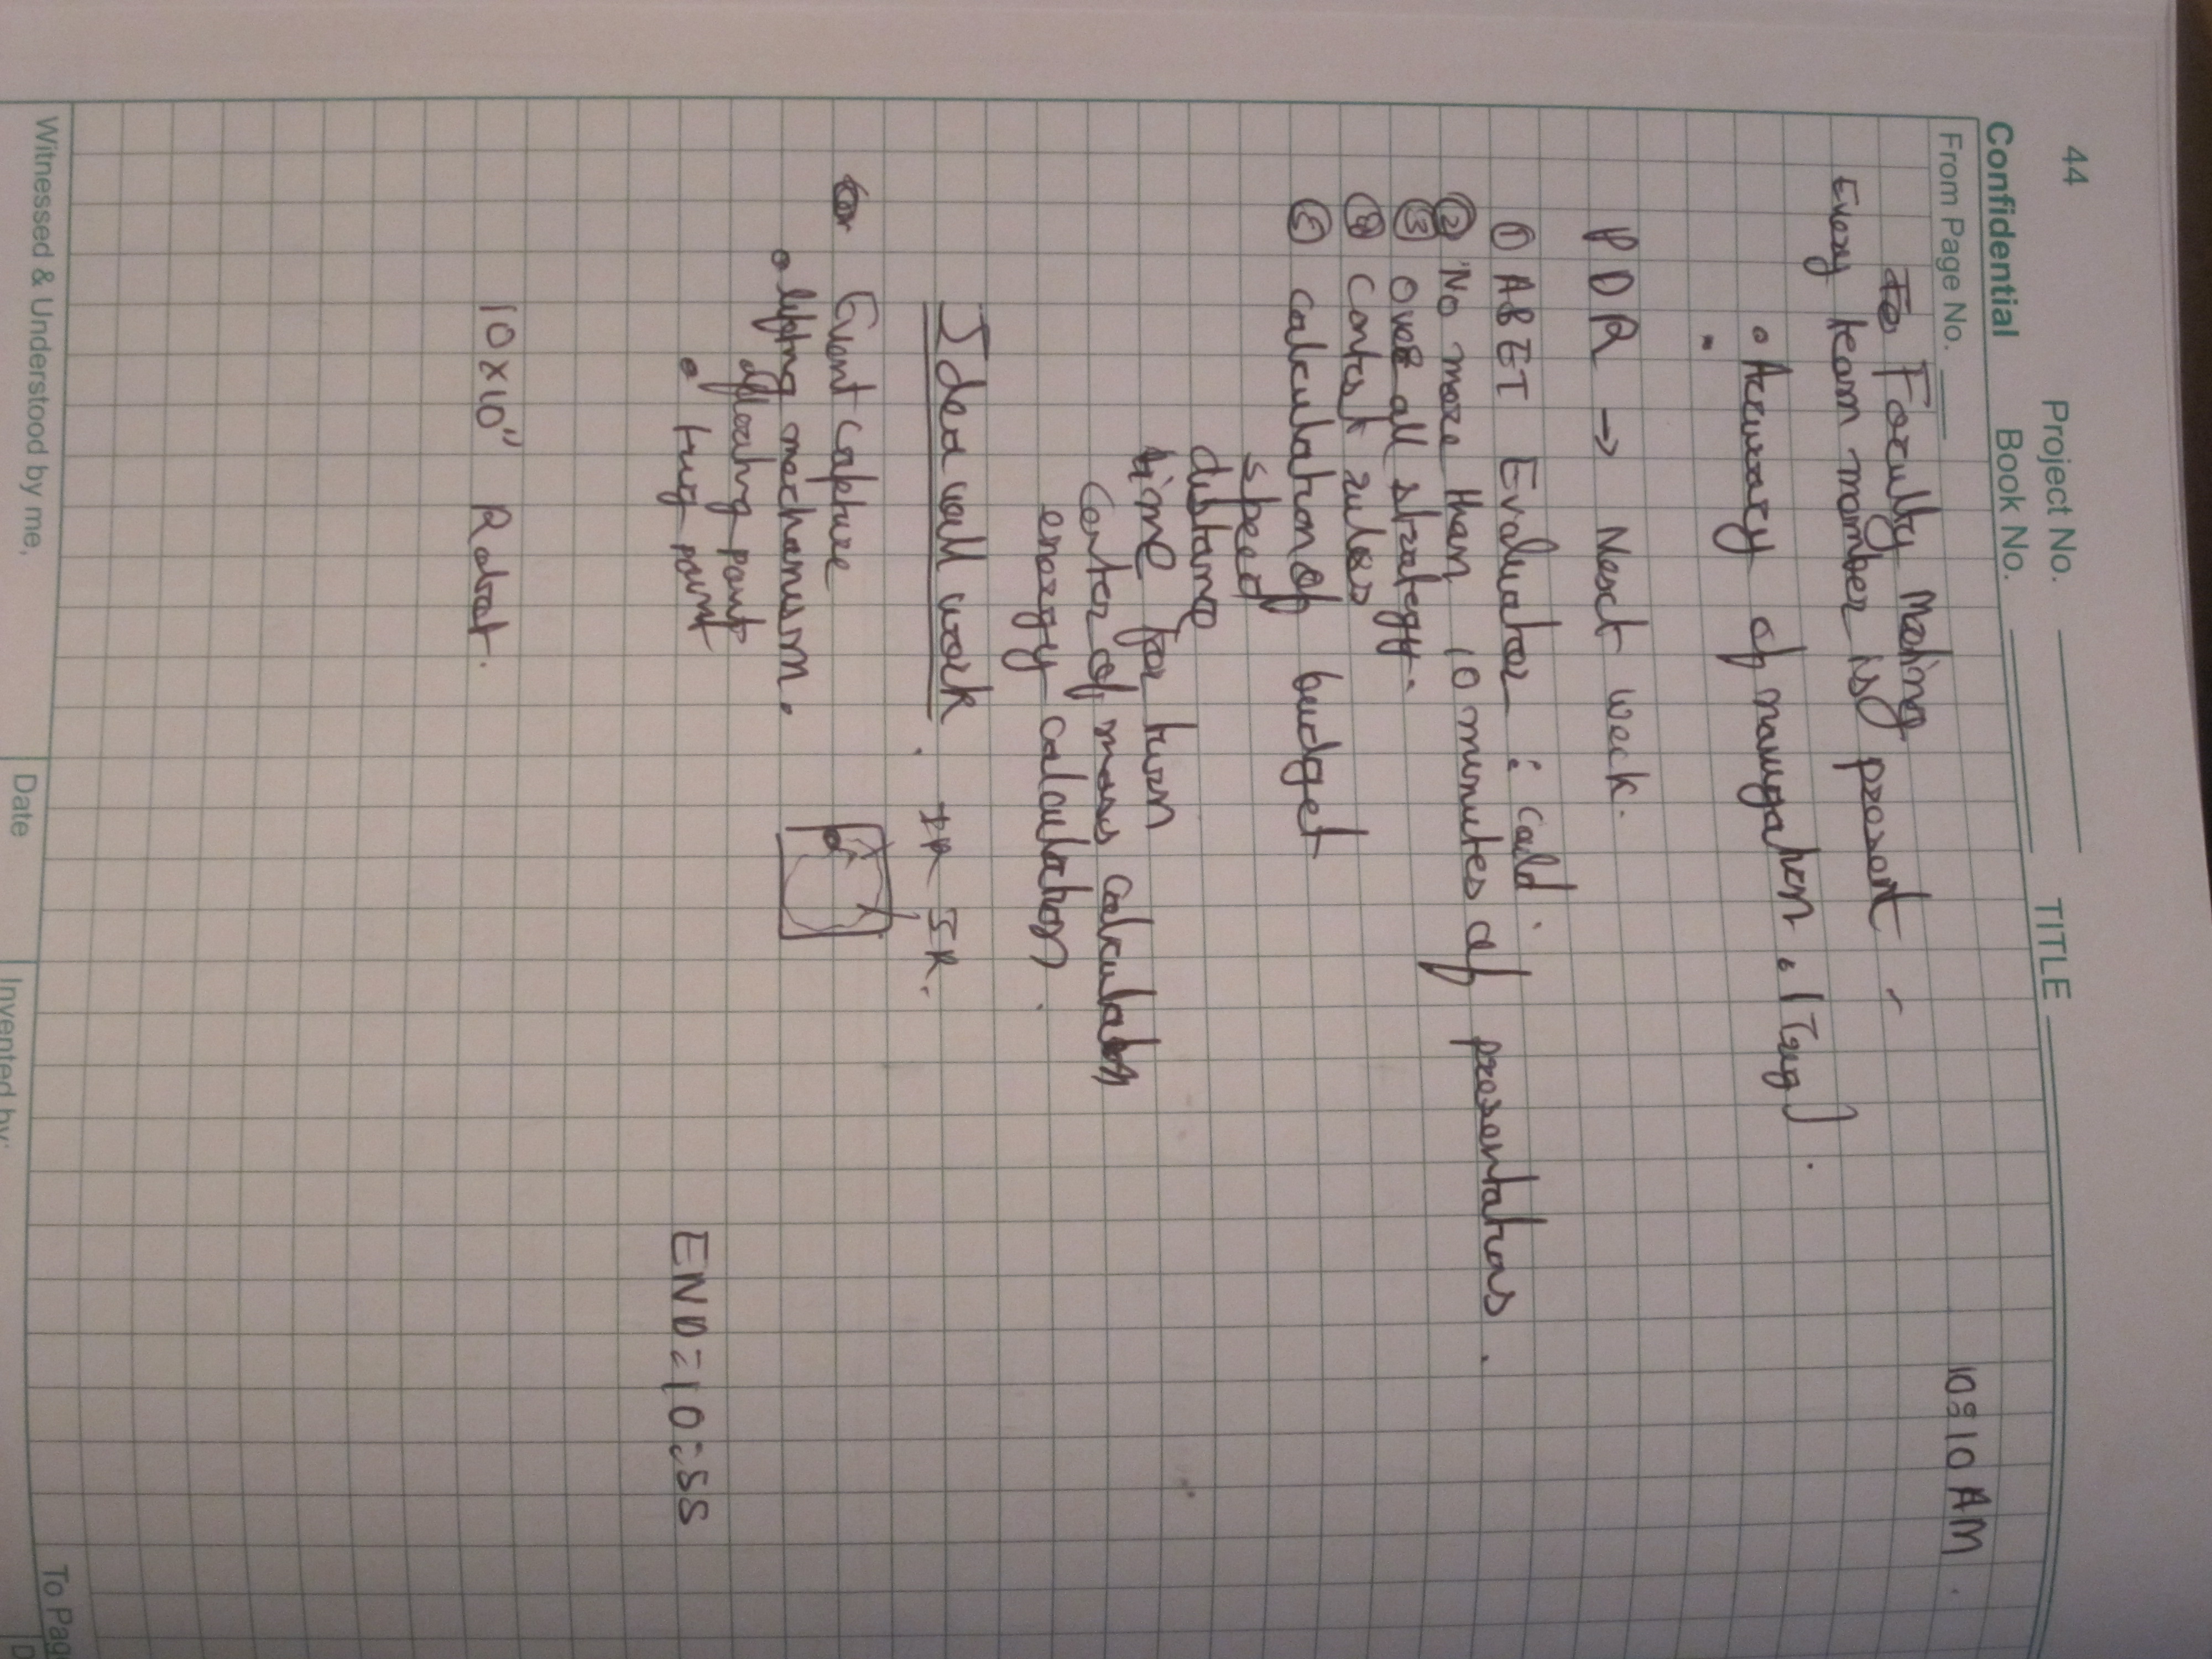 44
Project No.
TITLE
Confidential
Book No.
From Page No.
10:10 AM
Faculty Meeting
Every team member is present
• Accuracy of navigation :
PDR → Next week.
① ABET Evaluator :
② No more than 10 minutes of presentations.
③ Over all strategy.
④ Contest rules
⑤ calculation of budget
speed
distance
time for turn
Center of mass calculation
energy calculation
Idea will work.
IR IR.
Event capture
• lifting mechanism.
point
• point
END = 10:55
10x10" Robot.
To Page
Witnessed & Understood by me,
Date
Invented by: